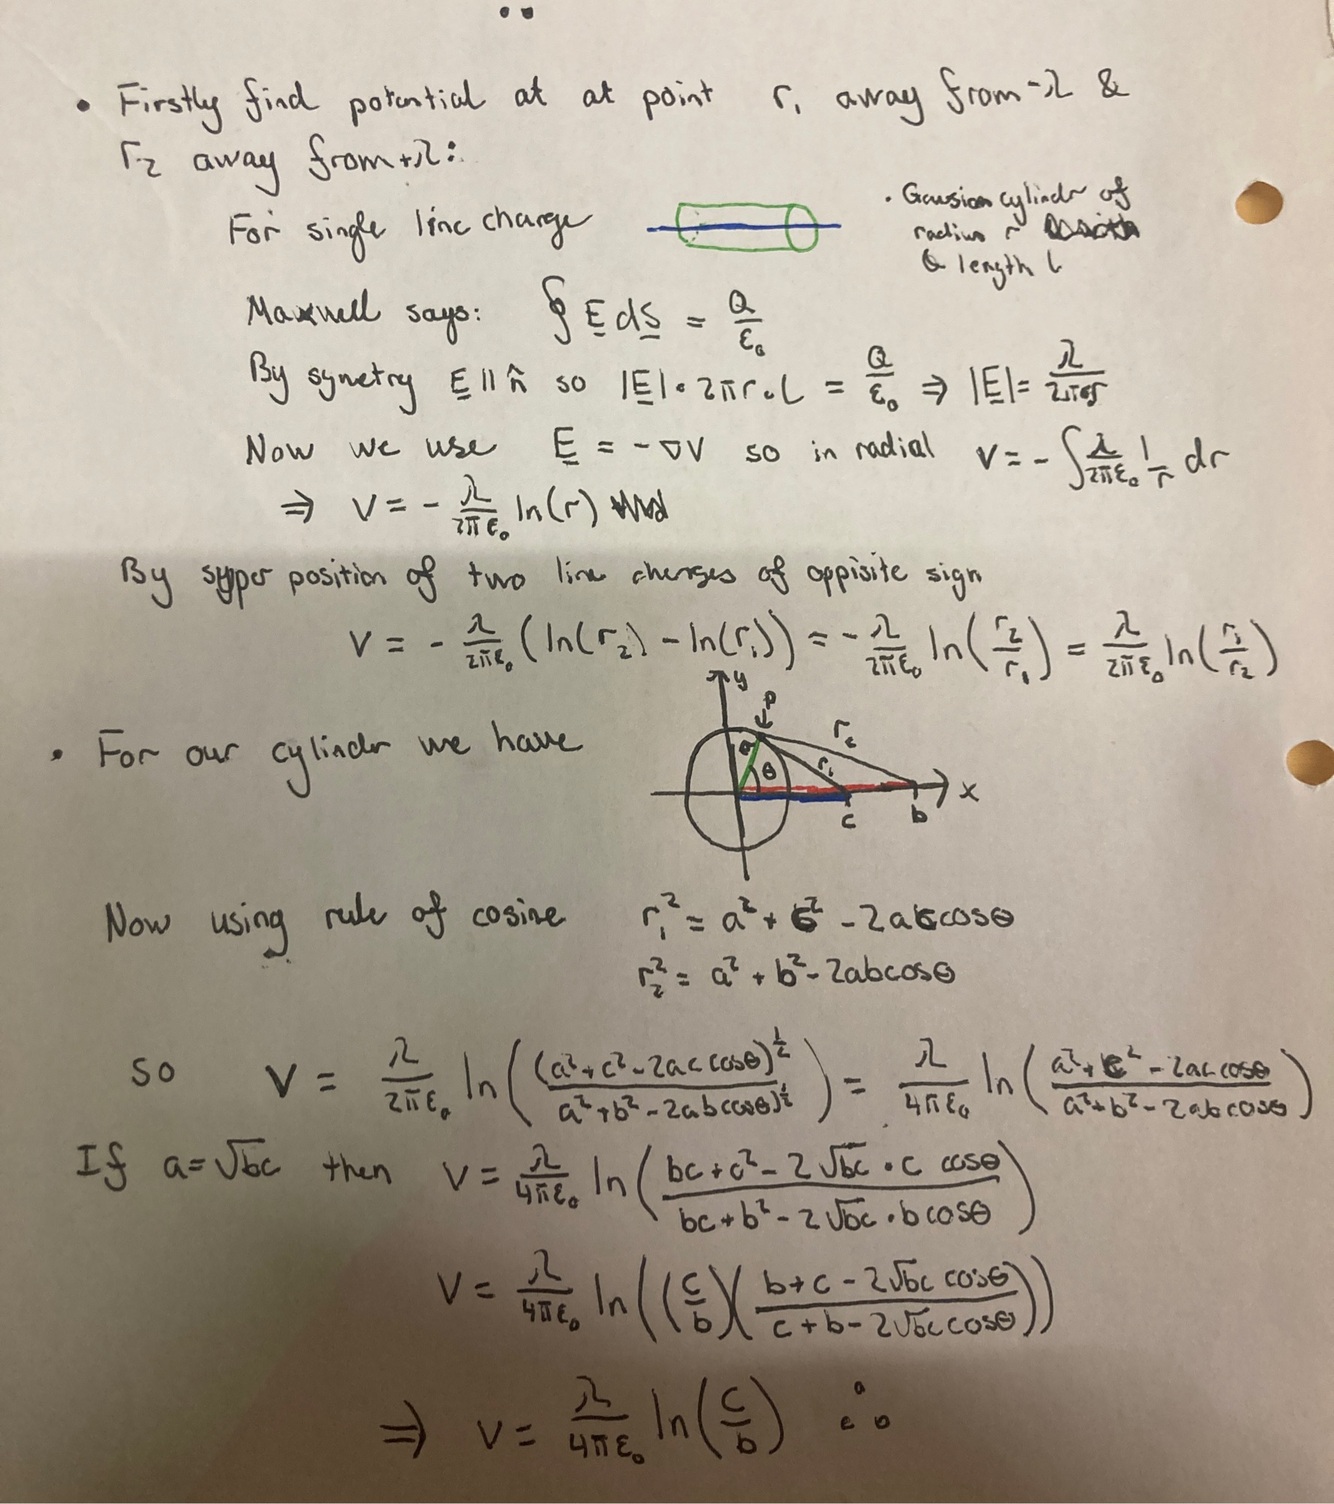 • Firstly find potential at at point r₁ away from -λ &
r₂ away from +λ:
For single line charge
• Gausian cylinder of
radius r
& length L
Maxwell says: ∮ E dS = Q/ε₀
By symetry E || n̂ so |E| · 2πr · L = Q/ε₀ ⇒ |E| = λ/2πε₀r
Now we use E = -∇V so in radial V = -∫ λ/2πε₀ 1/r dr
⇒ V = - λ/2πε₀ ln(r)
By syper position of two line charges of oppisite sign
V = - λ/2πε₀ (ln(r₂) - ln(r₁)) = - λ/2πε₀ ln(r₂/r₁) = λ/2πε₀ ln(r₁/r₂)
• For our cylinder we have
y
P
a
θ
r₂
r₁
x
c
b
Now using rule of cosine r₁² = a² + c² - 2accosθ
r₂² = a² + b² - 2abcosθ
so V = λ/2πε₀ ln((a²+c²-2accosθ)^½/(a²+b²-2abcosθ)^½) = λ/4πε₀ ln((a²+c²-2accosθ)/(a²+b²-2abcosθ))
If a=√bc then V = λ/4πε₀ ln((bc+c²-2√bc·c cosθ)/(bc+b²-2√bc·bcosθ))
V = λ/4πε₀ ln((c/b)((b+c-2√bc cosθ)/(c+b-2√bc cosθ)))
⇒ V = λ/4πε₀ ln(c/b) ∴